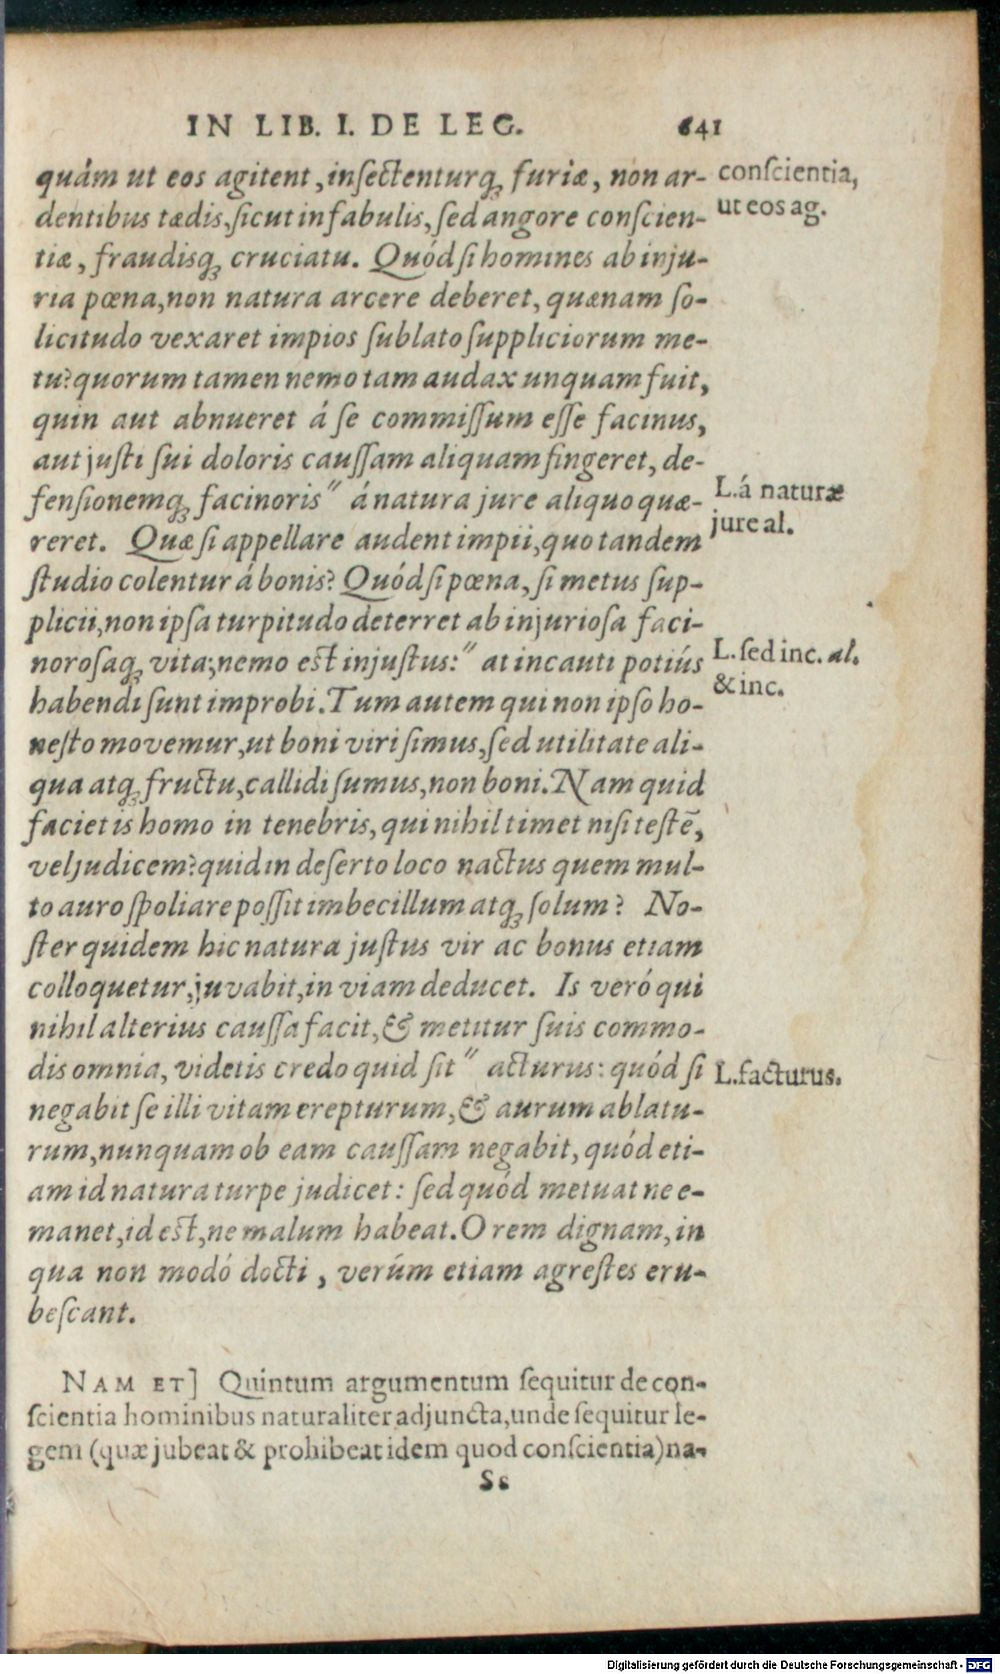 IN LIB. I. DE LEG. 641
quám ut eos agitent, inſectenturq́; furiæ, non ar-
dentibus tædis, ſicut in fabulis, ſed angore conſcien-
tiæ, fraudisq́; cruciatu. Quód ſi homines ab inju-
ria pœna, non natura arcere deberet, quænam ſo-
licitudo vexaret impios ſublato ſuppliciorum me-
tu? quorum tamen nemo tam audax unquam fuit,
quin aut abnueret á ſe commiſſum eſſe facinus,
aut juſti ſui doloris cauſſam aliquam fingeret, de-
fenſionemq́; facinoris" á natura jure aliquo quæ-
reret. Quæ ſi appellare audent impii, quo tandem
ſtudio colentur á bonis? Quód ſi pœna, ſi metus ſup-
plicii, non ipſa turpitudo deterret ab injurioſa faci-
noroſaq́; vita; nemo eſt injuſtus:" at incauti potiús
habendi ſunt improbi. Tum autem qui non ipſo ho-
neſto movemur, ut boni viri ſimus, ſed utilitate ali-
qua atq́; fructu, callidi ſumus, non boni. Nam quid
faciet is homo in tenebris, qui nihil timet niſi teſtē,
vel judicem? quid in deſerto loco nactus quem mul-
to auro ſpoliare poſſit imbecillum atq́; ſolum? No-
ſter quidem hic natura juſtus vir ac bonus etiam
colloquetur, juvabit, in viam deducet. Is veró qui
nihil alterius cauſſa facit, & metitur ſuis commo-
dis omnia, videtis credo quid ſit" acturus: quód ſi
negabit ſe illi vitam erepturum, & aurum ablatu-
rum, nunquam ob eam cauſſam negabit, quód eti-
am id natura turpe judicet: ſed quód metuat ne e-
manet, id eſt, ne malum habeat. O rem dignam, in
qua non modó docti, verúm etiam agreſtes eru-
beſcant.
conſcientia,
ut eos ag.
L. á naturæ
jure al.
L. ſed inc. al.
& inc.
L. facturus.
NAM ET] Quintum argumentum ſequitur de con-
ſcientia hominibus naturaliter adjuncta, unde ſequitur le-
gem (quæ jubeat & prohibeat idem quod conſcientia) na-
Ss
Digitalisierung gefördert durch die Deutsche Forschungsgemeinschaft - DFG